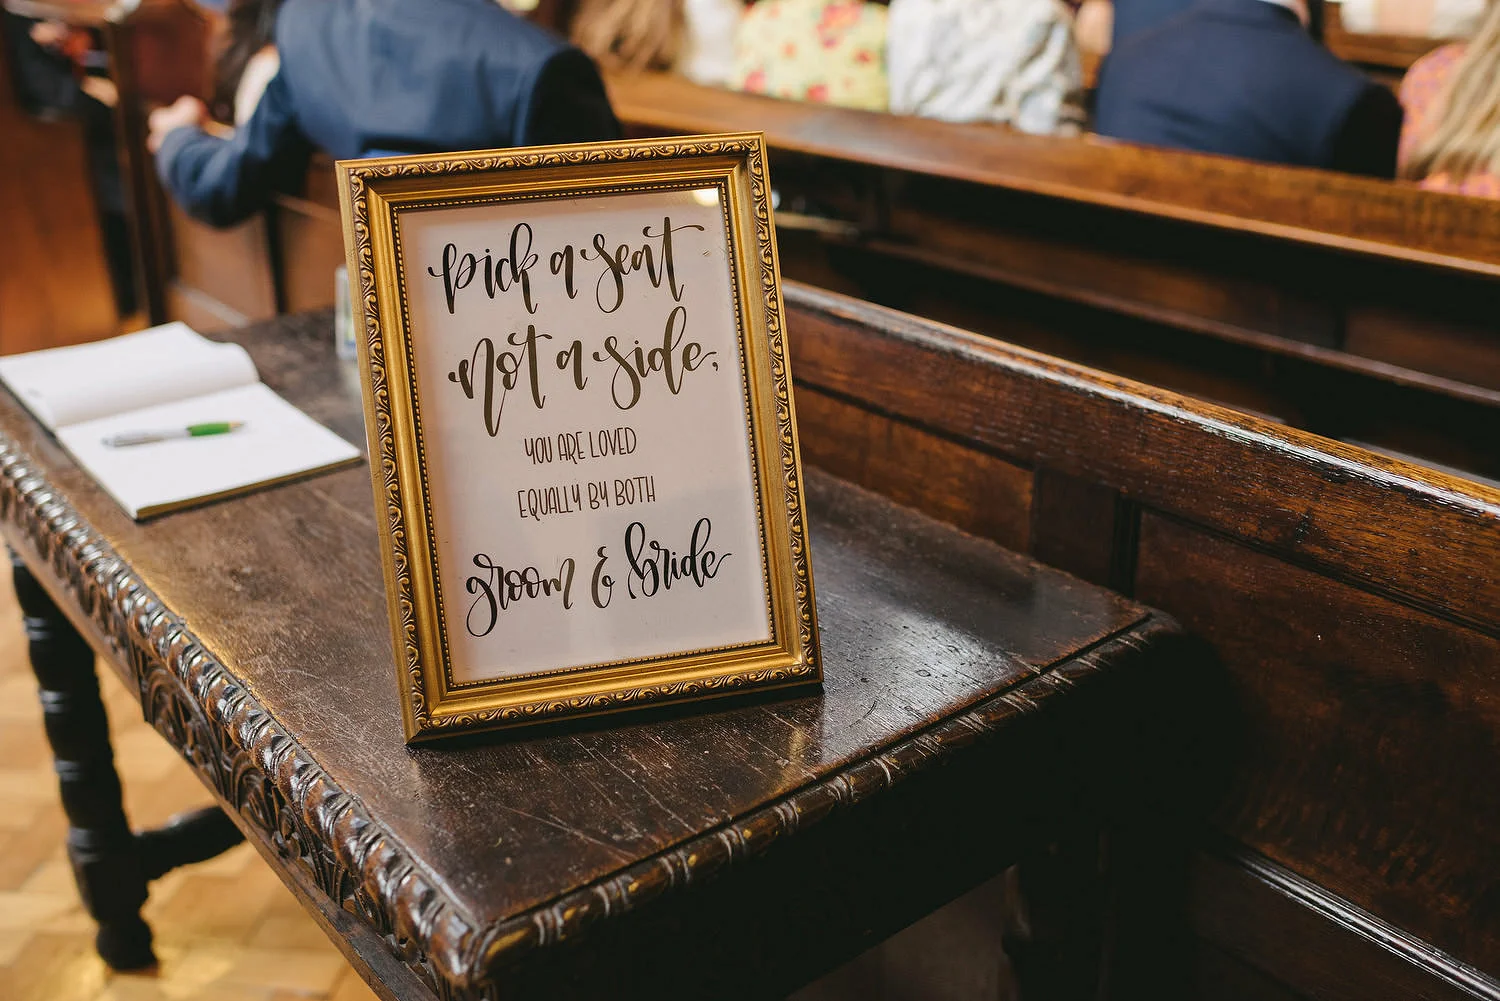 pick a seat
not a side,
YOU ARE LOVED
EQUALLY BY BOTH
groom & bride